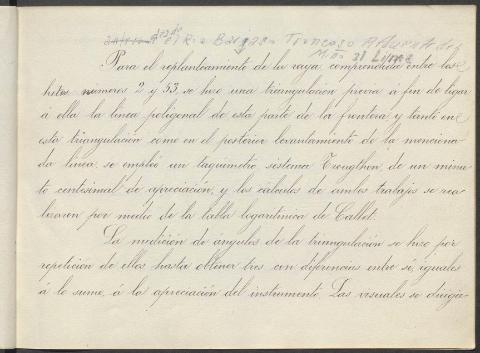 desde
el Rio Barjas a Troncoso Afluente del
Miño
Para el replanteamiento de la raya, comprendida entre los
hitos numeros 2 y 53, se hizo una triangulación previa á fin de ligar
á ella la linea poligonal de esta parte de la frontera y tanto en
esta triangulación como en el posterior levantamiento de la menciona-
da linea, se empleó un taquimetro sistema Troughton, de un minu-
to centesimal de apreciación, y los cálculos de ambos trabajos se rea-
lizaron por medio de la tabla logaritmica de Callet.
La medición de ángulos de la triangulación se hizo por
repetición de ellos hasta obtener tres con diferencias entre si, iguales
á lo sumo, á la apreciación del instrumento. Las visuales se dirigie-